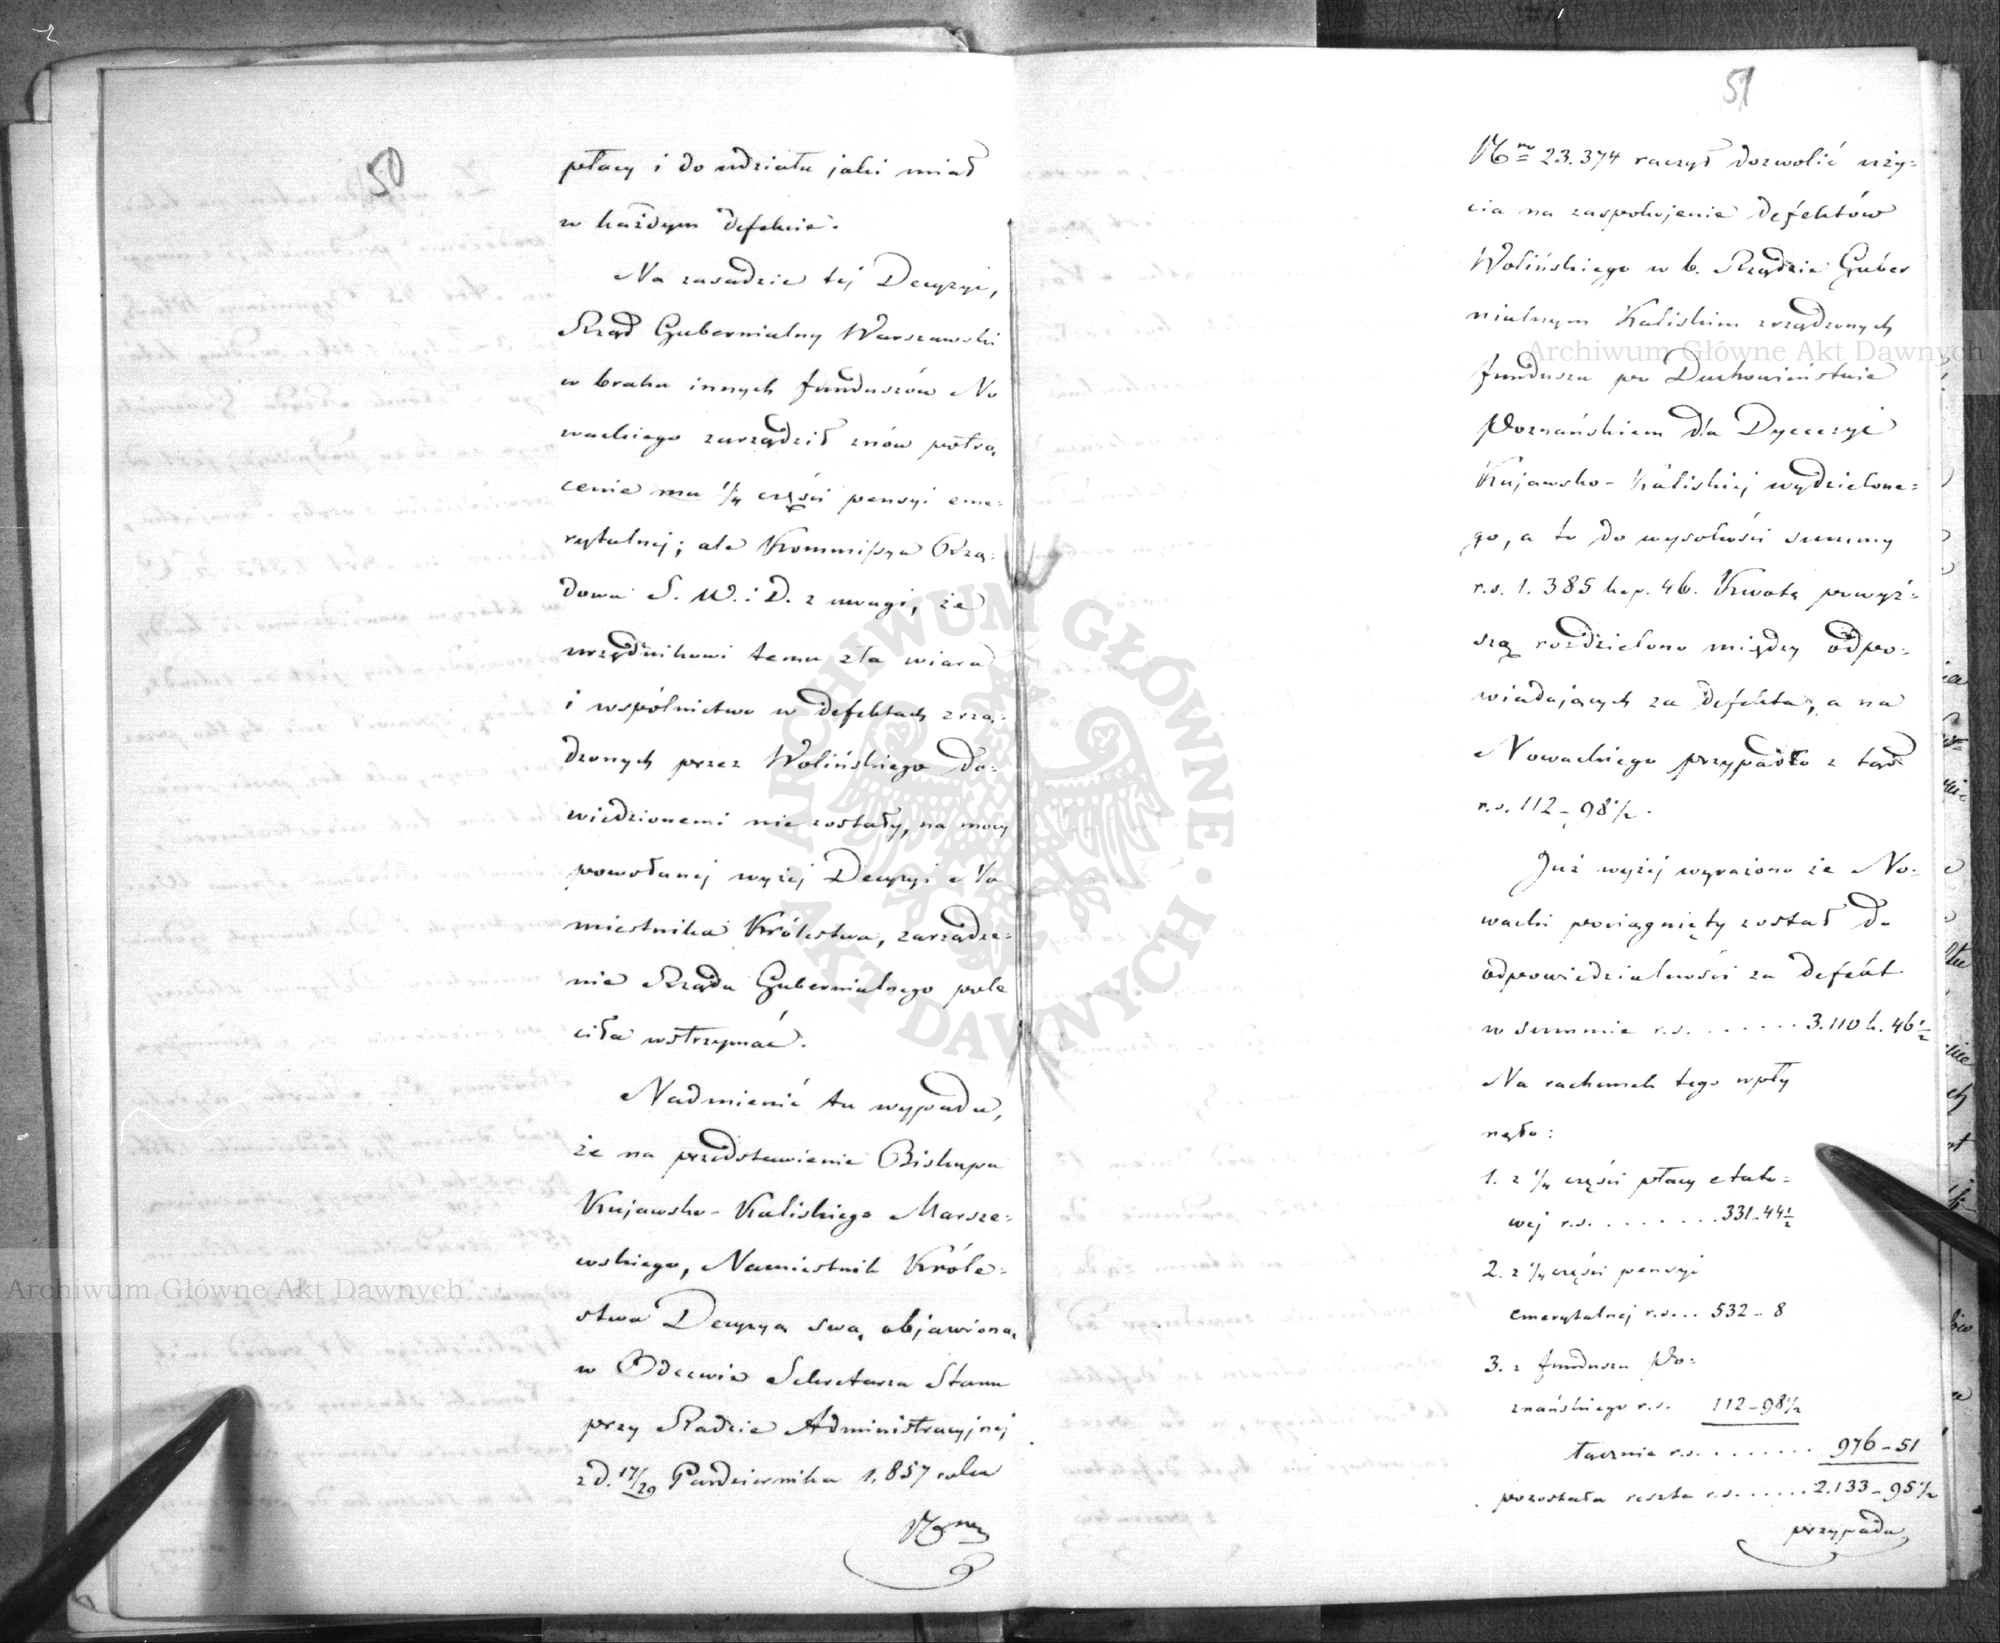 50
płacy i do udziału jaki miał
w każdym defekcie.
Na zasadzie tej Decyzyi,
Rząd Gubernialny Warszawski
w braku innych funduszów No
wackiego zarządził znów potrą
cenie mu 1/4 części pensyi eme-
rytalnej; ale Kommissya Rzą-
dowa S. W. i D. z uwagi, że
urzędnikowi temu zła wiara
i wspólnictwo w defektach zrzą-
dzonych przez Wolińskiego do-
wiedzionemi nie zostały, na mocy
powołanej wyżej Decyzyi Na
miestnika Królestwa, zarządze-
nie Rządu Gubernialnego pole
ciła wstrzymać.
Nadmienić tu wypada,
że na przedstawienie Biskupa
Kujawsko-Kaliskiego Marsze-
wskiego, Namiestnik Króle-
stwa Decyzyą swą objawioną
w Odezwie Sekretarza Stanu
przy Radzie Administracyjnej
z d. 17/29 Października 1.857 roku
Nrm
51
Nrm 23.374 raczył dozwolić uży-
cia na zaspokojenie defektów
Wolińskiego w b. Rządzie Guber
nialnym Kaliskim zrządzonych
funduszu po Duchowieństwie
Poznańskiem dla Dyecezyi
Kujawsko-Kaliskiej wydzielone-
go, a to do wysokości summy
r.s. 1.385 kop. 46. Kwotę powyż-
szą rozdzielono między odpo-
wiadających za defekta, a na
Nowackiego przypadło z tąd
r.s. 112-98 1/2.
Już wyżej wyrażono że No-
wacki pociągnięty został do
odpowiedzialności za defekt
w summie r.s. . . . . . . 3.110 k. 46 1/2
Na rachunek tego wpły
nęło:
1. z 1/4 części płacy etato-
wej r.s. . . . . . . . . 331-44 1/2
2. z 1/4 części pensyi
emerytalnej r.s... 532-8
3. z funduszu Po-
znańskiego r.s. 112-98 1/2
łącznie r.s. . . . . . . . . 976-51
pozostała reszta r.s. . . . . . 2.133-95 1/2
przypada
Archiwum Główne Akt Dawnych
Archiwum Główne Akt Dawnych
ARCHIWUM GŁÓWNE AKT DAWNYCH